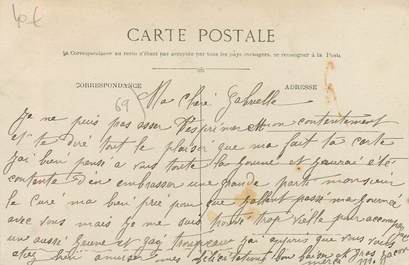 40 €
CARTE POSTALE
La Correspondance au recto n'étant pas acceptée par tous les pays étrangers, se renseigner à la Poste
CORRESPONDANCE ADRESSE
69
Ma Chére Gabrielle
Je ne puis pas assez t'exprimer mon contentement
et te diré tout le plaisir que ma fait ta carte
j'ai bien pensé a vous toute la journé et j'aurai été
contente d'en embrasser une grande parti monsieur
le Curé ma bien prié pour que j'allant passé la journé
avec vous mais je me suis trop vielle pour accompagner
un aussi jeune et gay troupeau j'ai apris que vous vous
etiez bien amuser mes